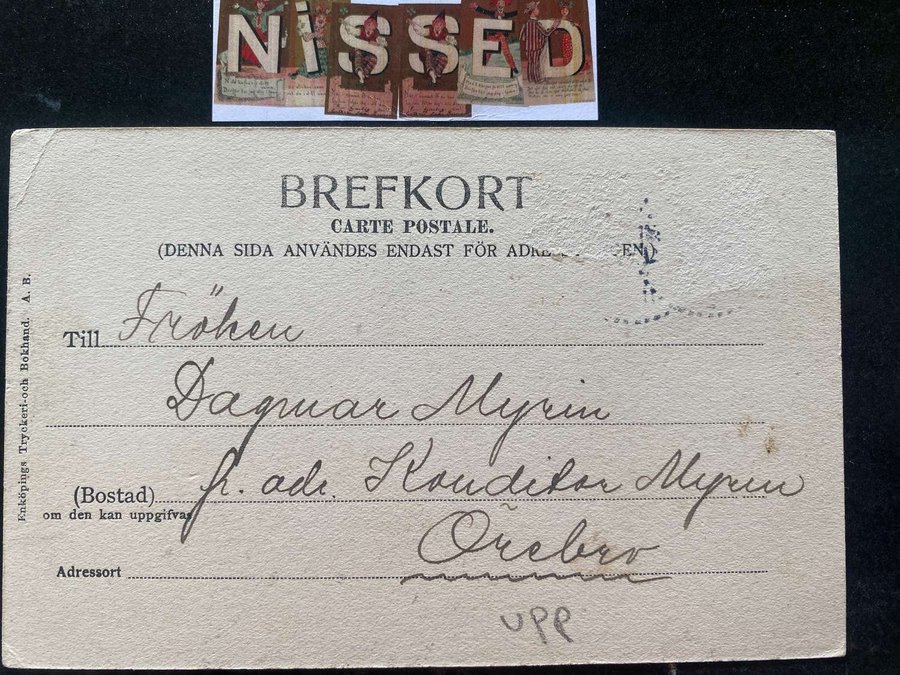 NiSSED
BREFKORT
CARTE POSTALE.
(DENNA SIDA ANVÄNDES ENDAST FÖR
Till Fröken
Dagmar Myrin
(Bostad) p. adr. Konditor Myrin
om den kan uppgifvas
Örebro
Adressort
upp
Enköpings Tryckeri-och Bokhand. A. B.